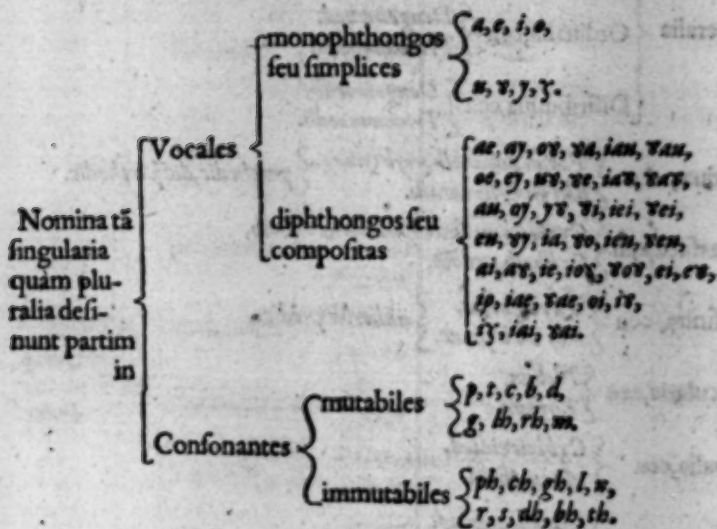 Nomina tã
ſingularia
quàm plu-
ralia deſi-
nunt partim
in
Vocales
monophthongos
ſeu ſimplices
a, e, i, o,
u, ɤ, y, ꝩ.
diphthongos ſeu
compoſitas
ae, ay, oɤ, ɤa, iau, ɤau,
oe, ey, uɤ, ɤe, iaɤ, ɤaɤ,
au, oy, yɤ, ɤi, iei, ɤei,
eu, ɤy, ia, ɤo, ieu, ɤeu,
ai, aɤ, ie, ioɤ, ɤoɤ, ei, eɤ,
io, iae, ɤae, oi, iɤ,
iꝩ, iai, ɤai.
Conſonantes
mutabiles
p, t, c, b, d,
g, lh, rh, m.
immutabiles
ph, ch, gh, l, n,
r, s, dh, bh, th.